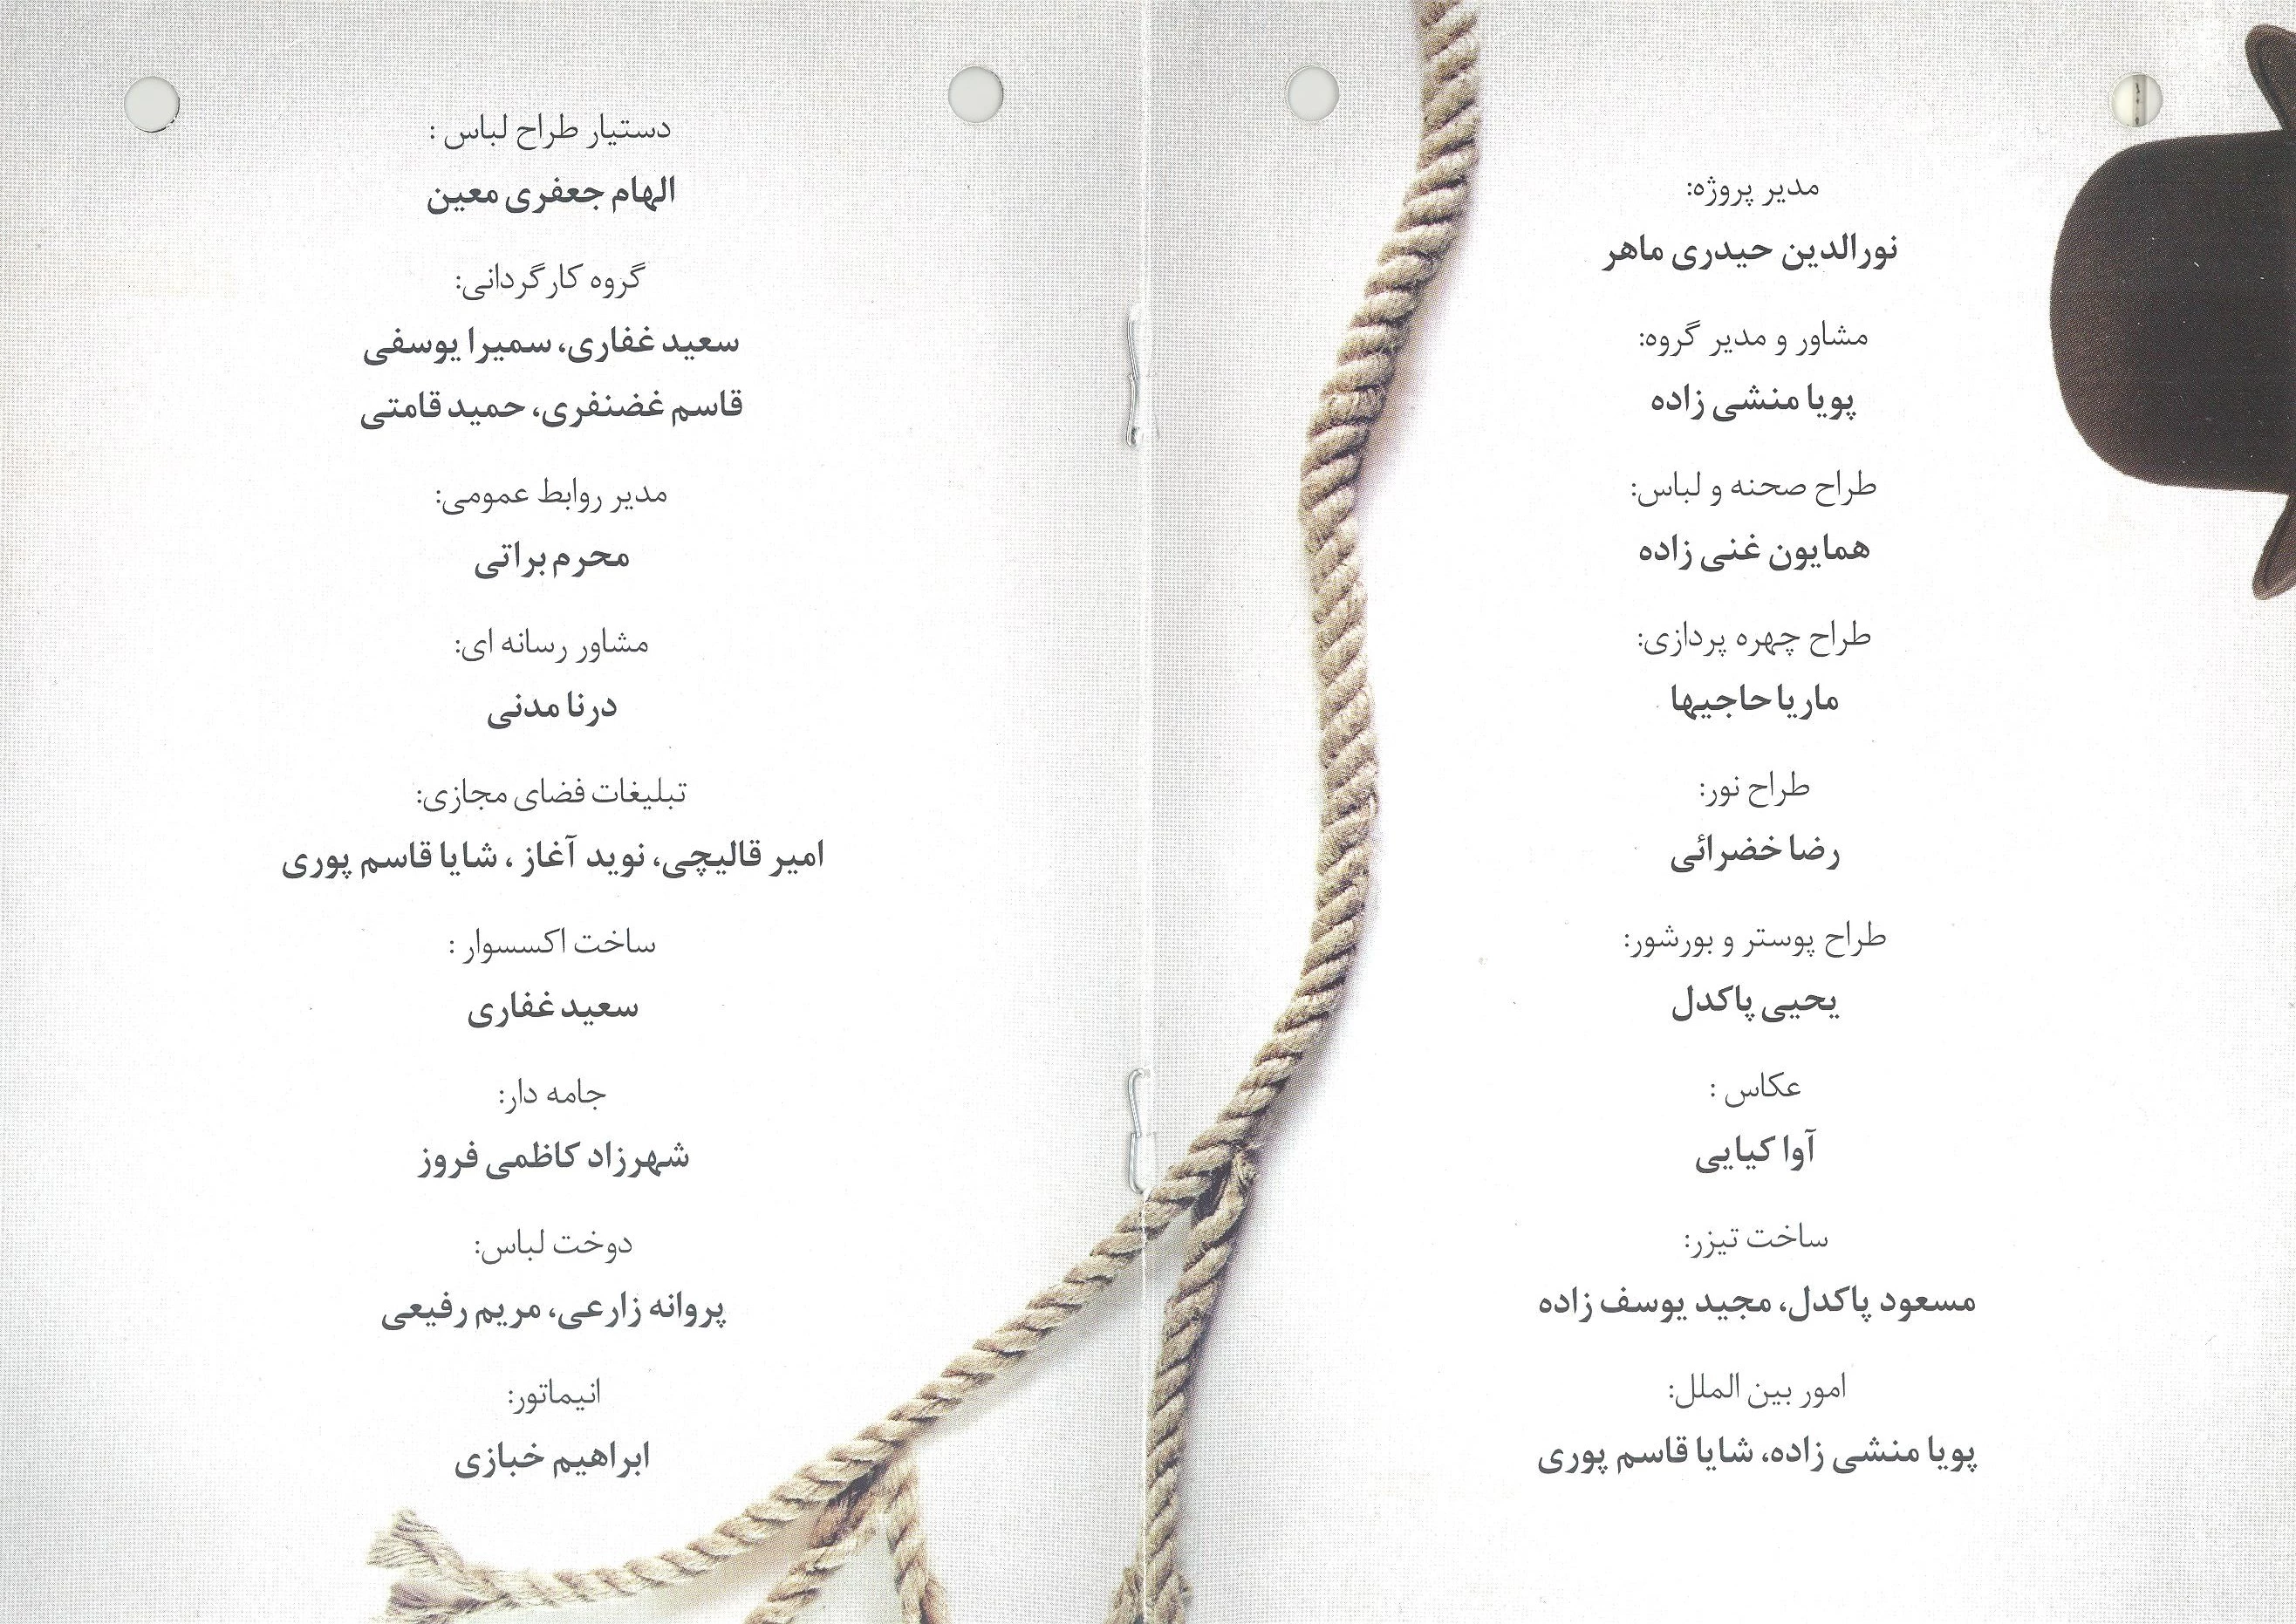 مدیر پروژه:
نورالدین حیدری ماهر
مشاور و مدیر گروه:
پویا منشی زاده
طراح صحنه و لباس:
همایون غنی زاده
طراح چهره پردازی:
ماریا حاجیها
طراح نور:
رضا خضرائی
طراح پوستر و بورشور:
یحیی پاکدل
عکاس :
آوا کیایی
ساخت تیزر:
مسعود پاکدل، مجید یوسف زاده
امور بین الملل:
پویا منشی زاده، شایا قاسم پوری
دستیار طراح لباس :
الهام جعفری معین
گروه کارگردانی:
سعید غفاری، سمیرا یوسفی
قاسم غضنفری، حمید قامتی
مدیر روابط عمومی:
محرم براتی
مشاور رسانه ای:
درنا مدنی
تبلیغات فضای مجازی:
امیر قالیچی، نوید آغاز ، شایا قاسم پوری
ساخت اکسسوار :
سعید غفاری
جامه دار:
شهرزاد کاظمی فروز
دوخت لباس:
پروانه زارعی، مریم رفیعی
انیماتور:
ابراهیم خبازی